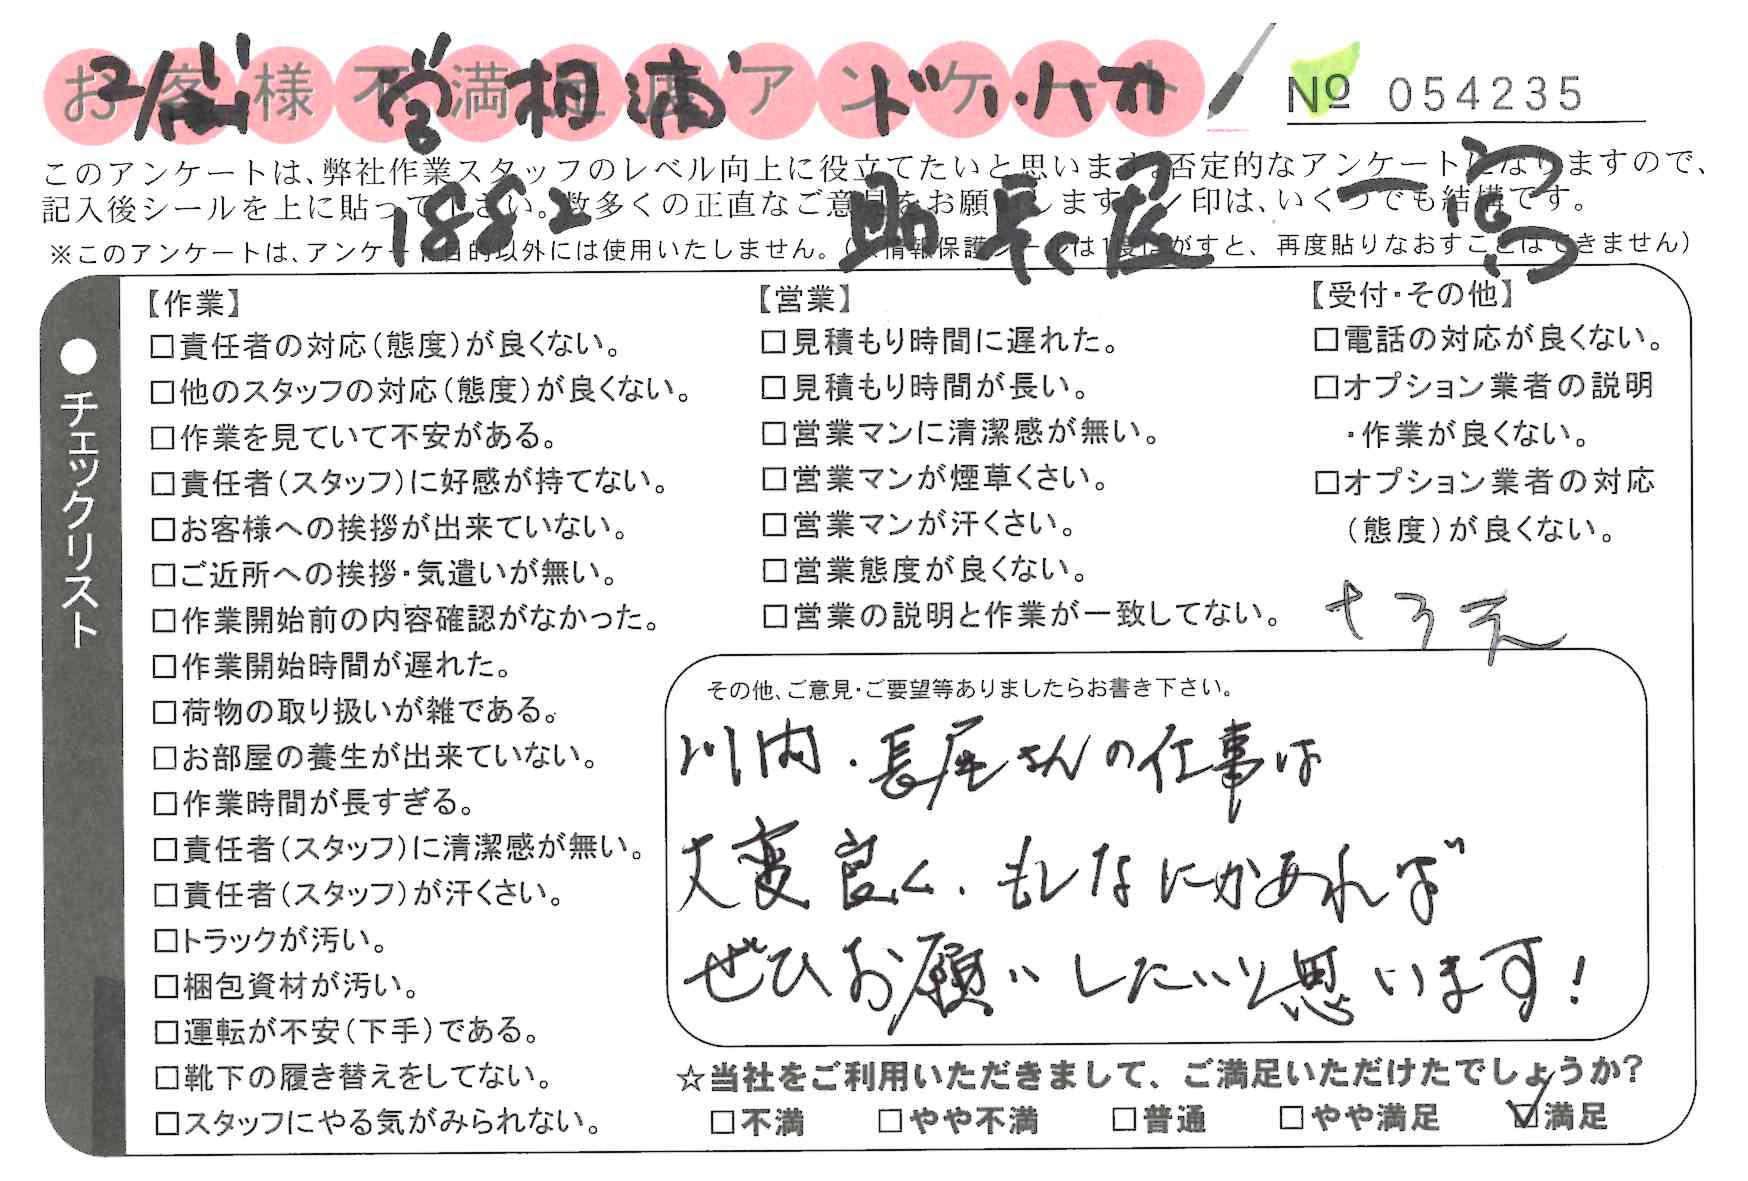 お客様不満足度アンケート
№ 054235
営 相浦 ド.ハオ
1882 助 長屋 一宮
このアンケートは、弊社作業スタッフのレベル向上に役立てたいと思います。否定的なアンケートになりますので、
記入後シールを上に貼って下さい。数多くの正直なご意見をお願いします。レ印は、いくつでも結構です。
※このアンケートは、アンケート目的以外には使用いたしません。(※情報保護シールは1度はがすと、再度貼りなおすことはできません)
●チェックリスト
【作業】
□責任者の対応(態度)が良くない。
□他のスタッフの対応(態度)が良くない。
□作業を見ていて不安がある。
□責任者(スタッフ)に好感が持てない。
□お客様への挨拶が出来ていない。
□ご近所への挨拶・気遣いが無い。
□作業開始前の内容確認がなかった。
□作業開始時間が遅れた。
□荷物の取り扱いが雑である。
□お部屋の養生が出来ていない。
□作業時間が長すぎる。
□責任者(スタッフ)に清潔感が無い。
□責任者(スタッフ)が汗くさい。
□トラックが汚い。
□梱包資材が汚い。
□運転が不安(下手)である。
□靴下の履き替えをしてない。
□スタッフにやる気がみられない。
【営業】
□見積もり時間に遅れた。
□見積もり時間が長い。
□営業マンに清潔感が無い。
□営業マンが煙草くさい。
□営業マンが汗くさい。
□営業態度が良くない。
□営業の説明と作業が一致してない。
【受付・その他】
□電話の対応が良くない。
□オプション業者の説明
・作業が良くない。
□オプション業者の対応
(態度)が良くない。
その他、ご意見・ご要望等ありましたらお書き下さい。
川内・長屋さんの仕事は
大変良く、もしなにかあれば
ぜひお願いしたいと思います!
☆当社をご利用いただきまして、ご満足いただけたでしょうか?
□不満 □やや不満 □普通 □やや満足 ☑満足